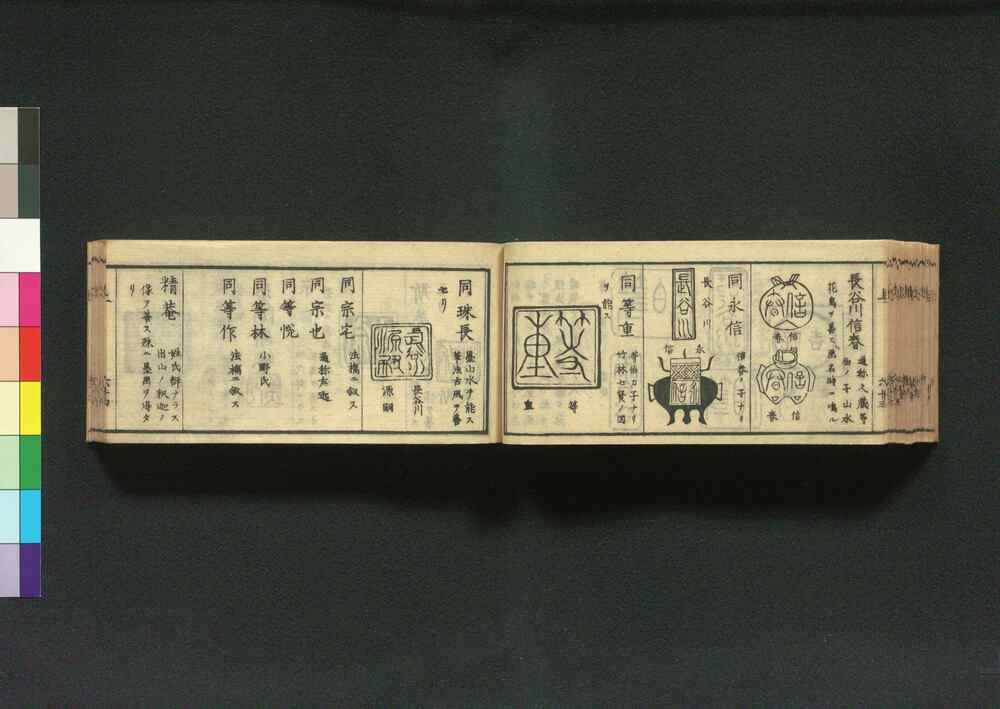 長谷川信春
通称久蔵等
伯ノ子山水
花鳥ヲ善ミ画名時ニ鳴ル
信
春
信
春
同永信
信春ノ子ナリ
長谷川
長谷川
永
信
同等重
等伯カ子ナリ
竹林七賢ノ図
ヲ能ス
等
重
同珠長
墨山水ヲ能ス
筆法古風ヲ慕
セリ
長谷川
源嗣
同宗宅
法橋ニ叙ス
同宗也
通称左近
同等悦
同等林
小野氏
同等作
法橋ニ叙ス
精菴
姓氏詳ナラス
出山ノ釈迦ノ
像ヲ筆ス殊ニ墨画ヲ得タ
リ